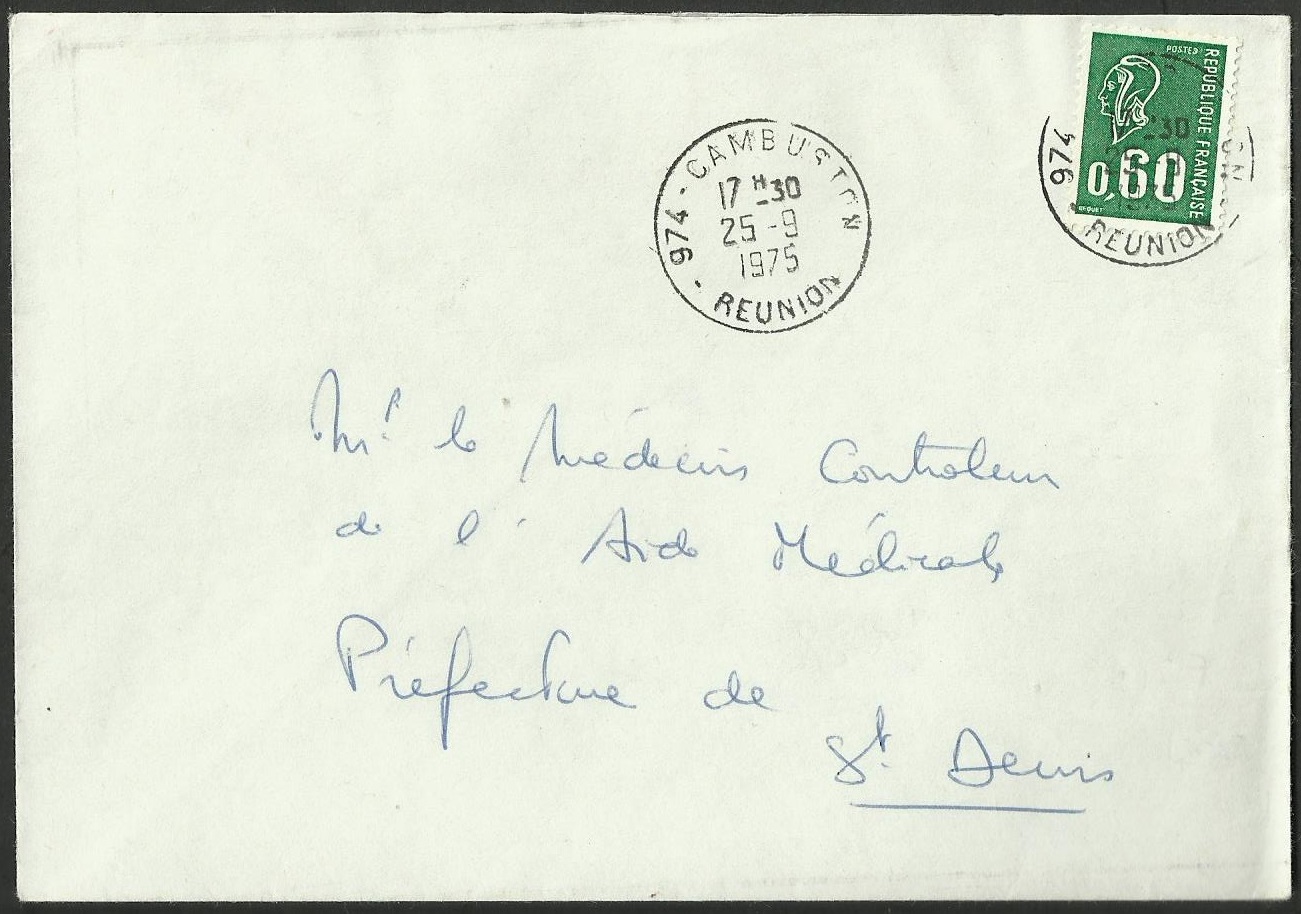 POSTES
REPUBLIQUE FRANÇAISE
0,60
BEQUET
974 - CAMBUSTON
17 H -30
25 -9
1975
- REUNION
974
-30
1975
- REUNION
Mr. le Médecin Controleur
de l'Aide Médicale
Préfecture de
St. Denis